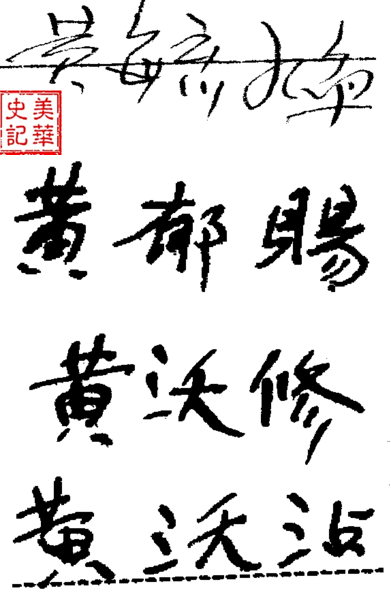 黄毓麟
美華
史記
黄郁賜
黄沃修
黄沃沾